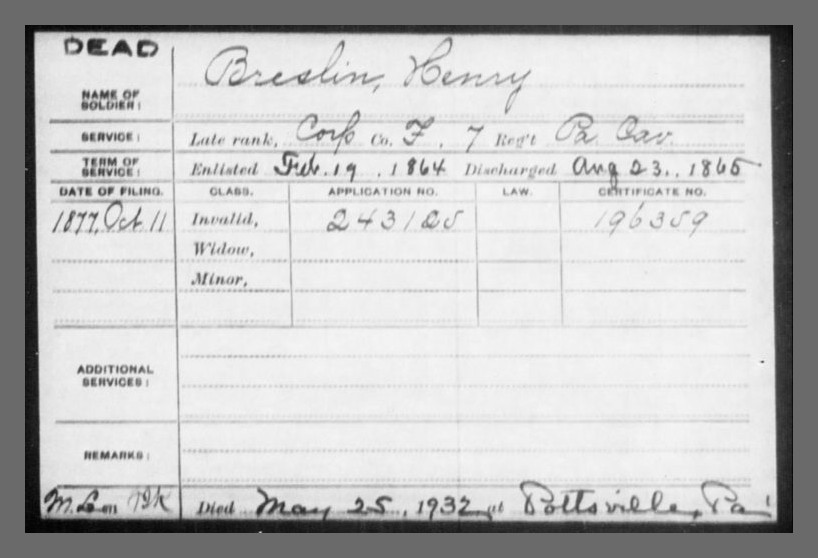 DEAD
NAME OF SOLDIER: Breslin, Henry
SERVICE: Late rank, Corp Co. F, 7 Reg't Pa. Cav.
TERM OF SERVICE: Enlisted Feb. 19, 1864 Discharged Aug 23., 1865
DATE OF FILING. CLASS. APPLICATION NO. LAW. CERTIFICATE NO.
1877, Oct 11 Invalid, 243125 196359
Widow,
Minor,
ADDITIONAL SERVICES:
REMARKS:
Died May 25., 1932, at Pottsville, Pa